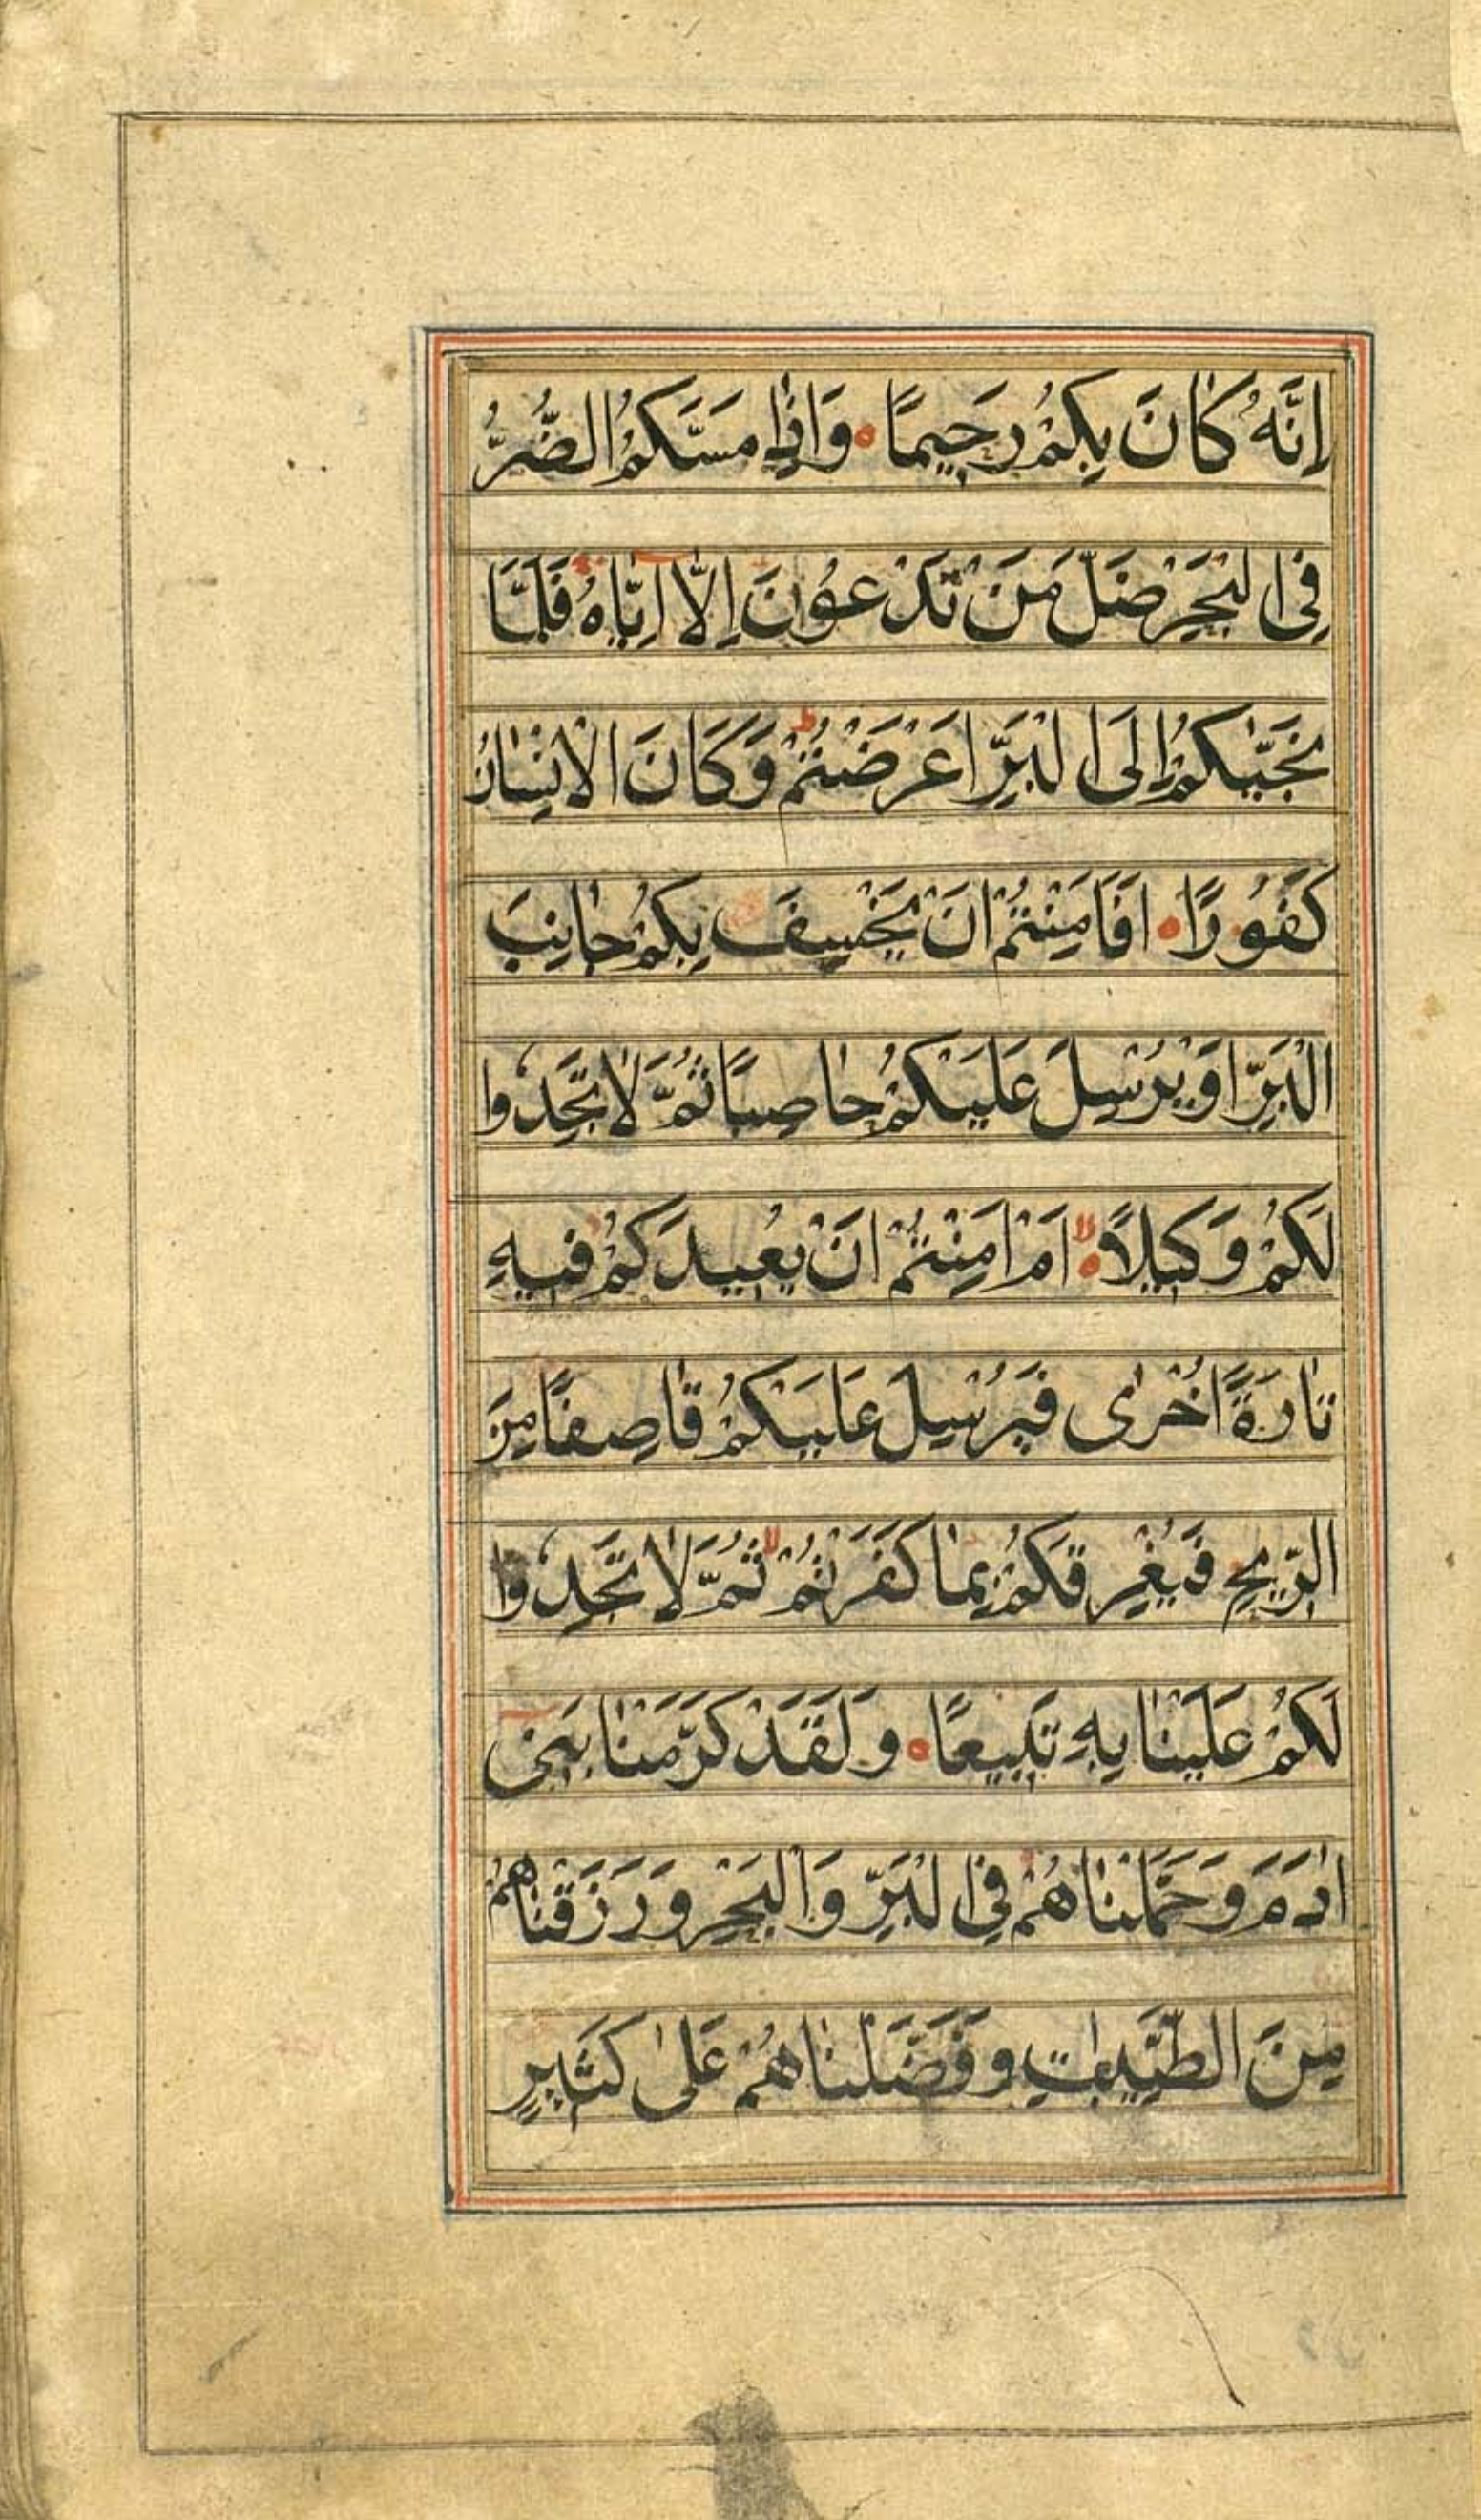 اِنَّهُ كَانَ بِكُمْ رَحِيمًا ۰ وَاِذَا مَسَّكُمُ الضُّرُّ
فِي الْبَحْرِ ضَلَّ مَنْ تَدْعُوْنَ اِلَّا اِيَّاهُ فَلَمَّا
نَجّٰيكُمْ اِلَى الْبَرِّ اَعْرَضْتُمْ ط وَكَانَ الْاِنْسَانُ
كَفُوْرًا ۰ اَفَاَمِنْتُمْ اَنْ يَخْسِفَ بِكُمْ جَانِبَ
الْبَرِّ اَوْ يُرْسِلَ عَلَيْكُمْ حَاصِبًا ثُمَّ لَا تَجِدُوا
لَكُمْ وَكِيلًا ۰ لا اَمْ اَمِنْتُمْ اَنْ يُعِيدَكُمْ فِيهِ
تَارَةً اُخْرٰى فَيُرْسِلَ عَلَيْكُمْ قَاصِفًا مِنَ
الرِّيحِ فَيُغْرِقَكُمْ بِمَا كَفَرْتُمْ لا ثُمَّ لَا تَجِدُوا
لَكُمْ عَلَيْنَا بِهِ تَبِيعًا ۰ وَلَقَدْ كَرَّمْنَا بَنِي
اٰدَمَ وَحَمَلْنَاهُمْ فِي الْبَرِّ وَالْبَحْرِ وَرَزَقْنَاهُمْ
مِنَ الطَّيِّبٰتِ وَفَضَّلْنَاهُمْ عَلٰى كَثِيرٍ